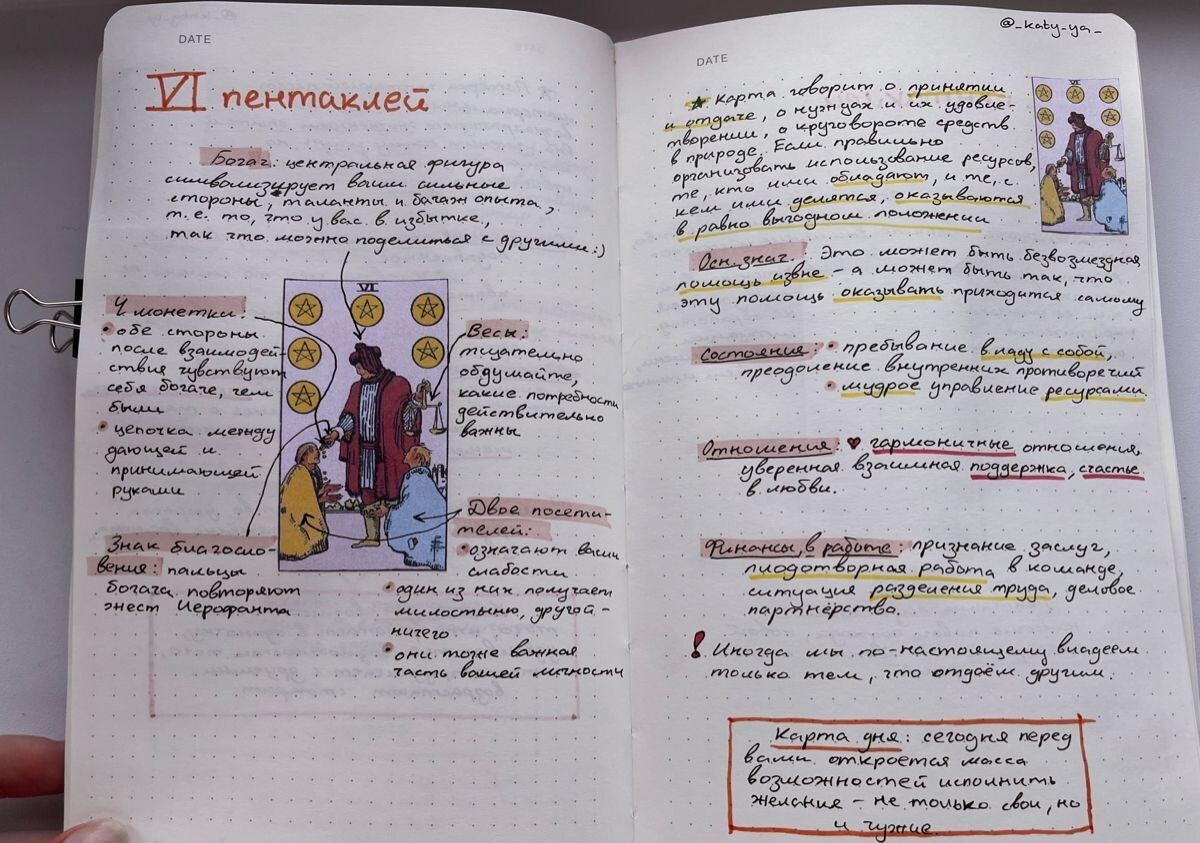 DATE
VI пентаклей
Богач: центральная фигура
символизирует ваши сильные
стороны, таланты и багаж опыта,
т.е. то, что у вас в избытке,
так что можно поделиться с другими :)
4 монетки:
• обе стороны
после взаимодей-
ствия чувствуют
себя богаче, чем
были
• цепочка между
дающей и
принимающей
руками
Знак благосло-
вения: пальцы
богача повторяют
жест Иерофанта
VI
Весы:
тщательно
обдумайте,
какие потребности
действительно
важны
Двое посети-
телей:
• означают ваши
слабости
• один из них получает
милостыню, другой -
ничего
• они тоже важная
часть вашей личности
@_katy-ya_
DATE
Карта говорит о принятии
и отдаче, о нуждах и их удовле-
творении, о круговороте средств
в природе. Если правильно
организовать использование ресурсов,
те, кто ими обладают, и те, с
кем ими делятся, оказываются
в равно выгодном положении
VI
Осн. знач. Это может быть безвозмездная
помощь извне – а может быть так, что
эту помощь оказывать приходится самому
Состояния: • пребывание в ладу с собой,
преодоление внутренних противоречий
• мудрое управление ресурсами
Отношения: ♥ гармоничные отношения,
уверенная взаимная поддержка, счастье
в любви.
Финансы, в работе: признание заслуг,
плодотворная работа в команде,
ситуация разделения труда, деловое
партнёрство.
! Иногда мы по-настоящему владеем
только тем, что отдаём другим.
Карта дня: сегодня перед
вами откроется масса
возможностей исполнить
желание – не только свои, но
и чужие